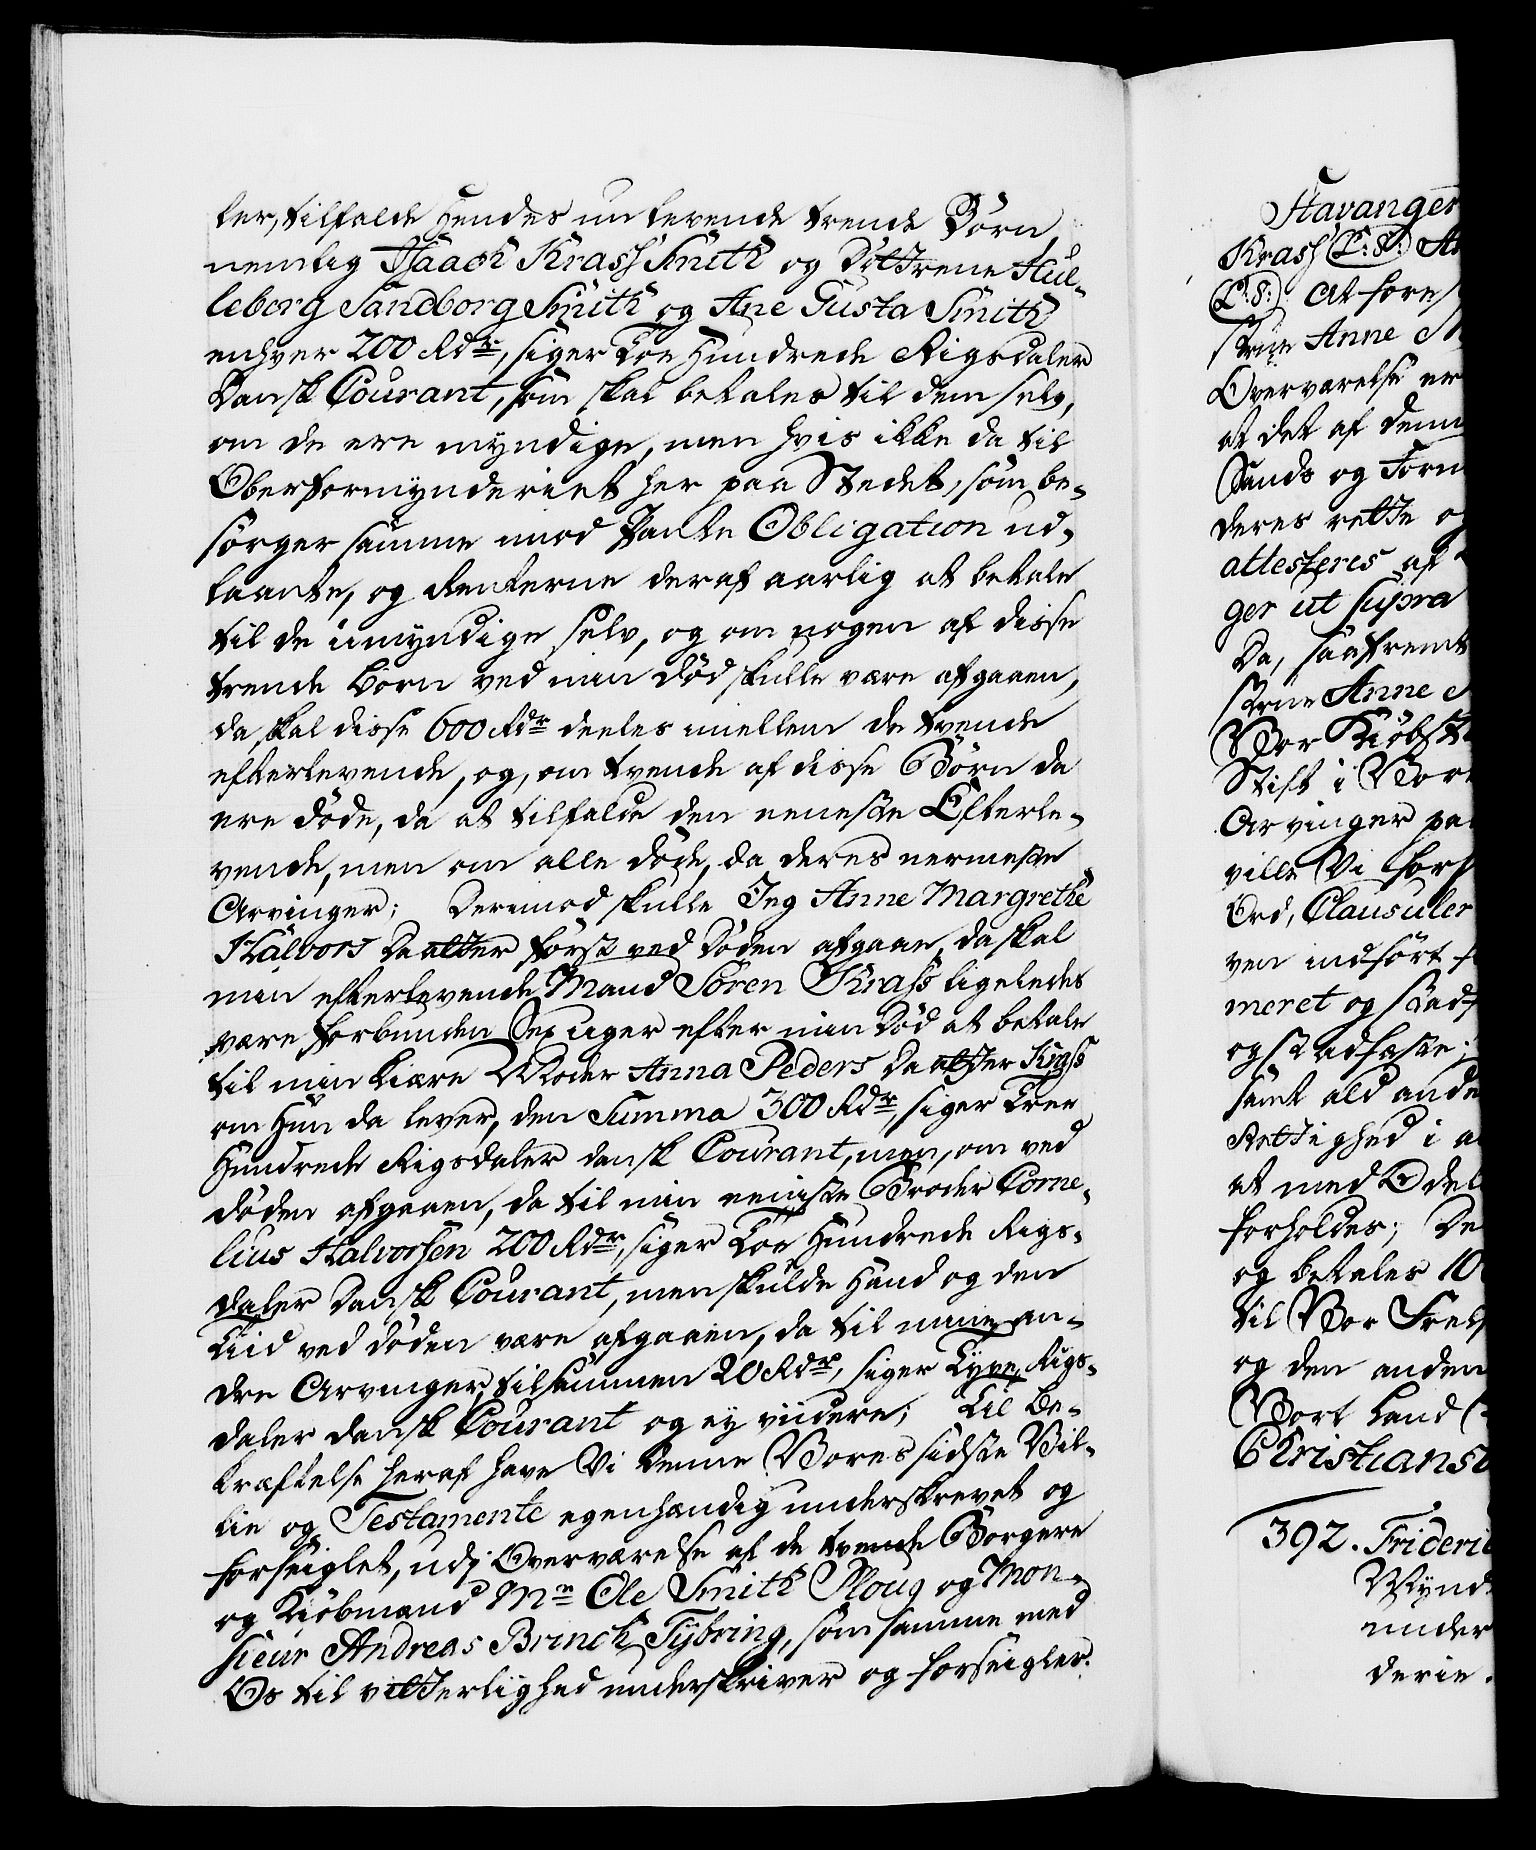 ler, tilfalde Hendes nu levende trende Børn,
nemlig Isaach Krass Smith og Døttrene Hul-
leborg Sandborg Smith og Ane Gusta Smith
enhver 200 Rdr, siger Toe Hundrede Rigsdaler
Dansk Courant, som skal betales til dem selv,
om de ere myndige, men hvis ikke da til
Oberformynderiet her paa Stedet, som be-
sørger samme imod Pante Obligation ud-
laante, og Renterne deraf aarlig at betale
til de umyndige selv, og om nogen af disse
trende Børn ved min død skulle være afgaaen,
da skal disse 600 Rdr deeles imellem de tvende
efterlevende, og, om tvende af disse Børn da
ere døde, da at tilfalde den eeneste Efterle-
vende, men om alle døde, da deres nermeste
Arvinger; Derimod skulle Jeg Anne Margrethe
Halvors Daatter først ved Døden afgaae, da skal
min efterlevende Mand Søren Krass ligeledes
være forbunden Sex uger efter min Død at betale
til min kiære Moder Anna Peders Daatter Krass
om Hun da lever, den Summa 300 Rdr, siger Tree
Hundrede Rigsdaler dansk Courant, men, om ved
døden afgaaen, da til min eeniste Broder Corne-
lius Halvorsen 200 Rdr, siger Toe Hundrede Rigs-
daler Dansk Courant, men skulde Hand og den
Tiid ved døden være afgaaen, da til mine an-
dre Arvinger, tilsammen 20 Rdr, siger Tyve Rigs-
daler dansk Courant og ey viidere; Til Be-
kræftelse heraf have Vi denne Vores sidste Vil-
lie og Testamente egenhændig underskrevet og
forseiglet, udj Overværelse af de tvende Borgere
og Kiøbmænd Mr Ole Smith Ploug og Mon-
sieur Andreas Brinch Tybring, som samme med
Os til vitterlighed underskriver og forseigler.
Stavanger
Krass (L:S:)
(L:S:) At fore
strue Anne M
Overværelse er
at det af dem
Sands og Forn
deres rette og
attesteres af
ger ut supra
Da, saafremt
strue Anne
Vor Kiøbst
Stift i Vort
Arvinger paa
ville Vi hors
Ord, Clausuler
ven indført f
meret og stadf
og stadfæste;
samt ald ande
Rettighed i a
at med Odel
forholdes; De
og betales 10
til Vor Frels
og den anden
Vort Land
Christiansb
392. Frideric
Mynd
under
derie.